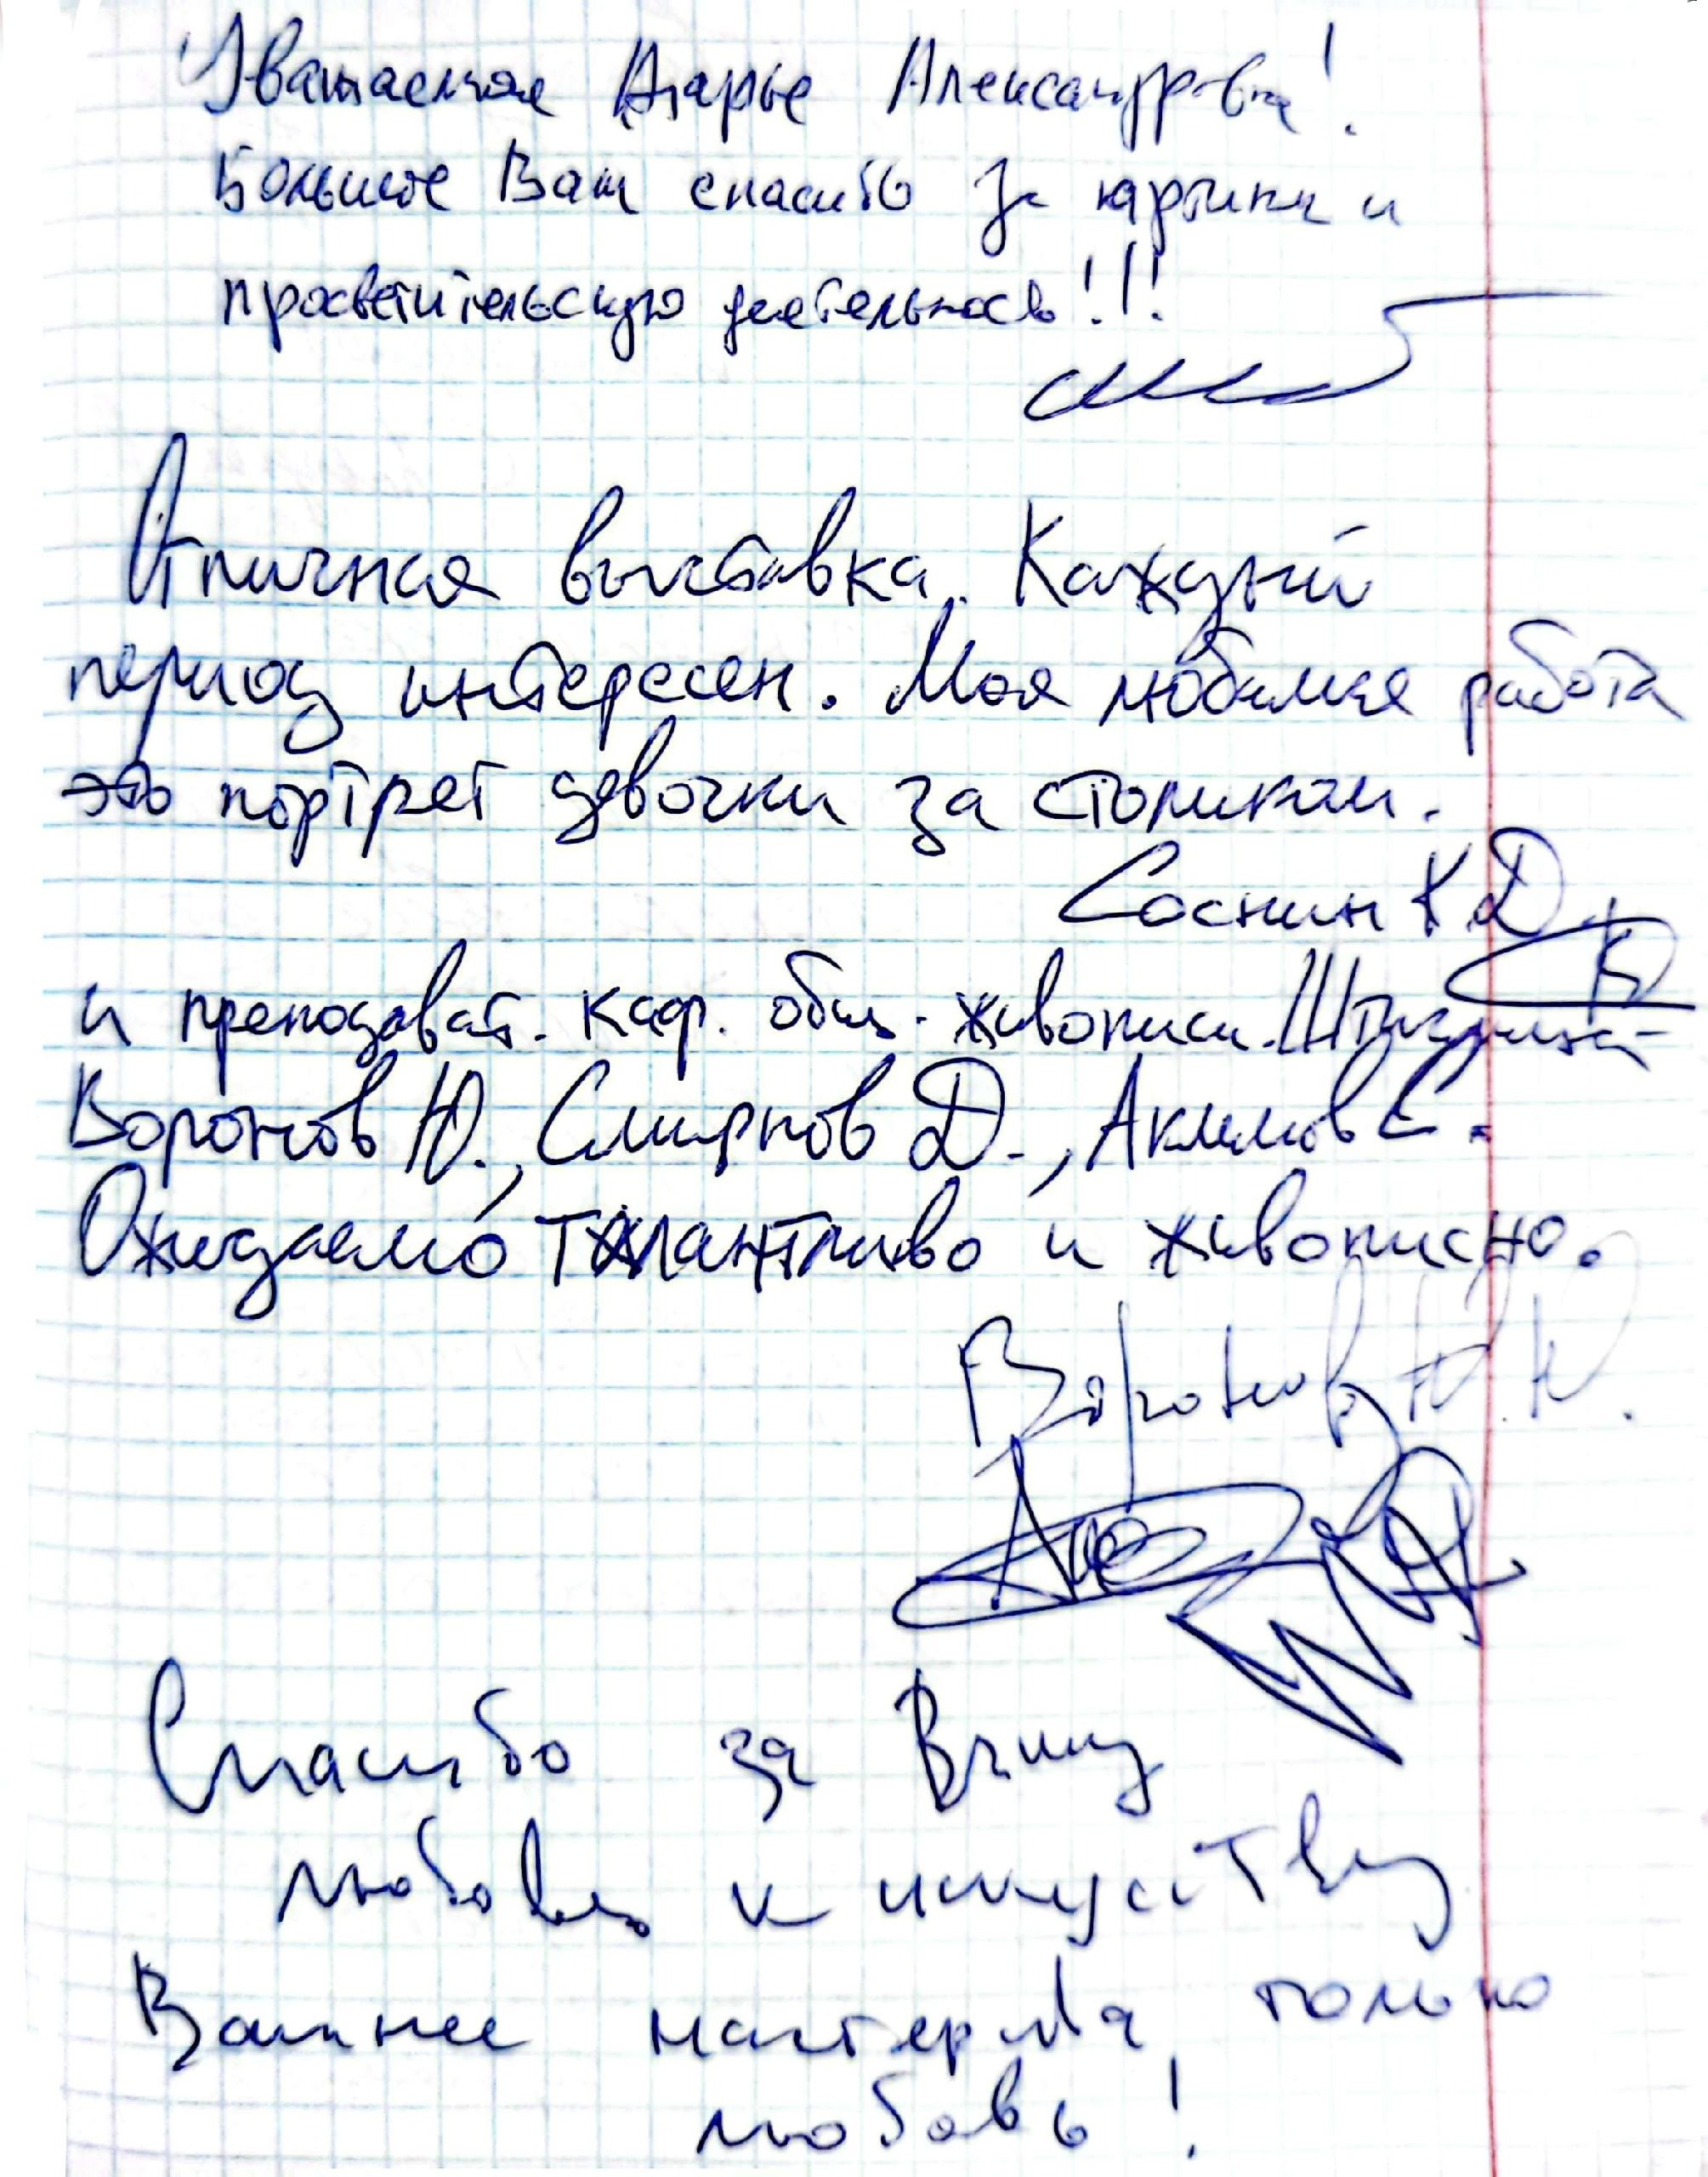 Уважаемая Дарья Александровна!
Большое Вам спасибо за картины и
просветительскую деятельность!!!
Отличная выставка. Каждый
период интересен. Моя любимая работа
это портрет девочки за столиком.
Соснин К Д
и преподават. каф. общ. живописи.
Воронов Ю., Смирнов Д., Акимов С.
Ожидаемо талантливо и живописно.
Воронов Ю.Ю.
Спасибо за Вашу
любовь к искусству
Важнее мастерства только
любовь!